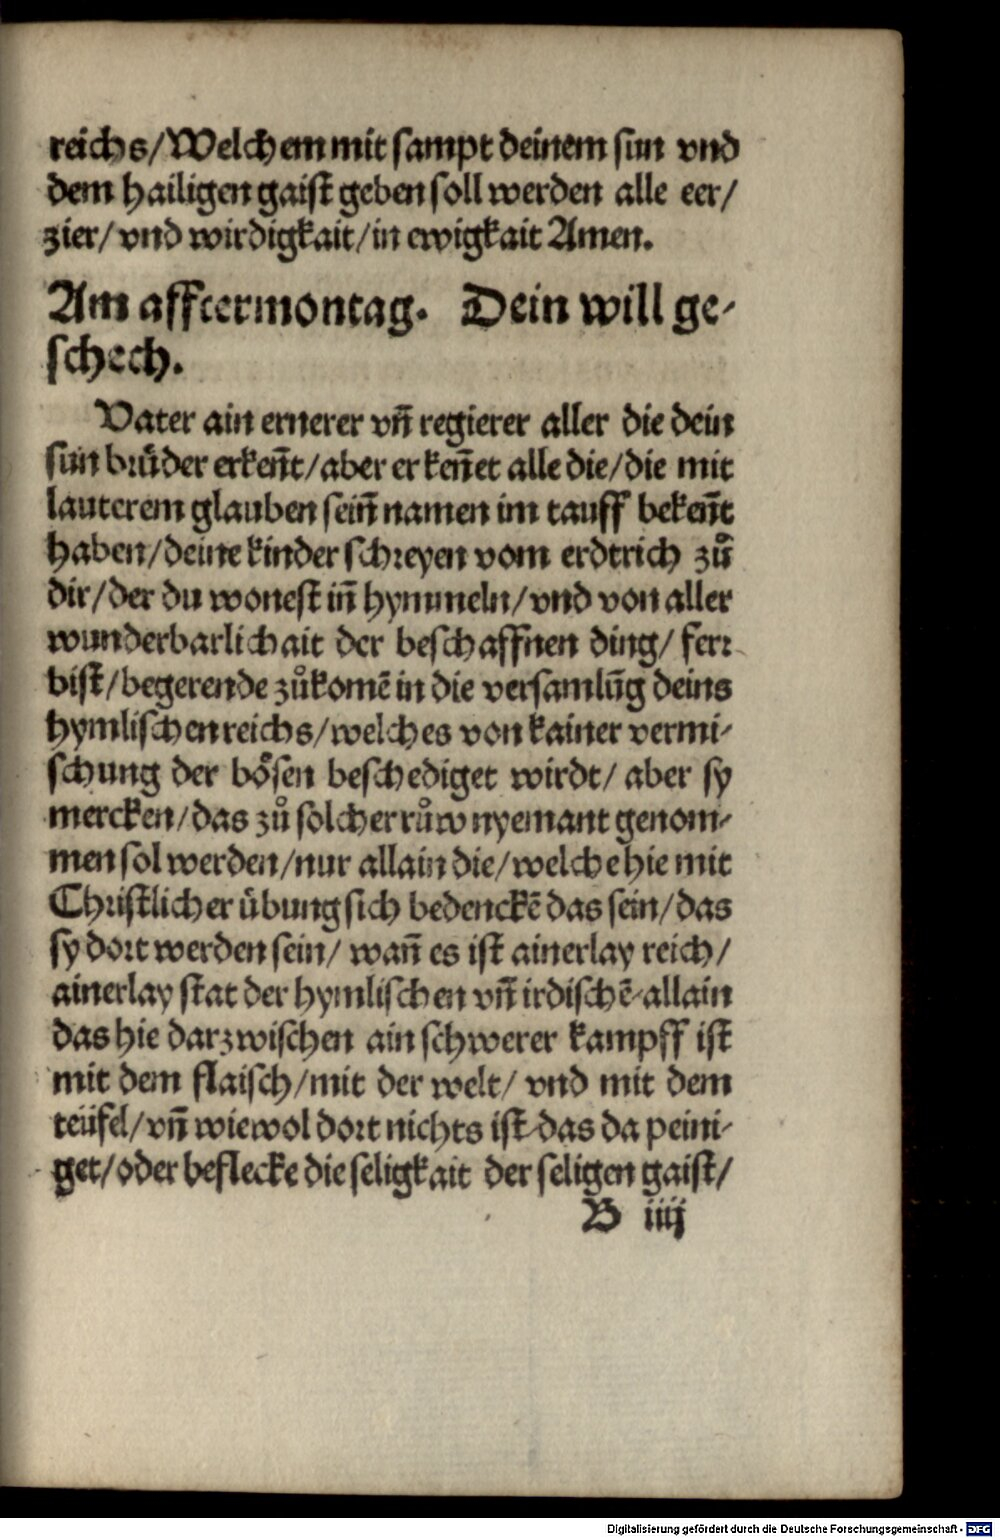 reichs/Welchem mit sampt deinem sun vnd
dem hailigen gaist geben soll werden alle eer/
zier/ vnd wirdigkait/in ewigkait Amen.
Am afftermontag. Dein will ge-
schech.
Vater ain ernerer vn̄ regierer aller die dein
sun bruͤder erken̄t/aber er ken̄et alle die/die mit
lauterem glauben sein̄ namen im tauff beken̄t
haben/deine kinder schreyen vom erdtrich zuͦ
dir/der du wonest in̄ hymmeln/vnd von aller
wunderbarlichait der beschaffnen ding/ ferr
bist/begerende zuͦkomē in die versamlūg deins
hymlischen reichs/welches von kainer vermi-
schung der boͤsen beschediget wirdt/ aber sy
mercken/das zuͦ solcher ruͦw nyemant genom-
men sol werden/nur allain die/welche hie mit
Christlicher uͤbung sich bedenckē das sein/das
sy dort werden sein/ wan̄ es ist ainerlay reich/
ainerlay stat der hymlischen vn̄ irdischē/allain
das hie darzwischen ain schwerer kampff ist
mit dem flaisch/mit der welt/ vnd mit dem
teüfel/vn̄ wiewol dort nichts ist/das da peini-
get/oder beflecke die seligkait der seligen gaist/
B iiij
Digitalisierung gefördert durch die Deutsche Forschungsgemeinschaft - DFG